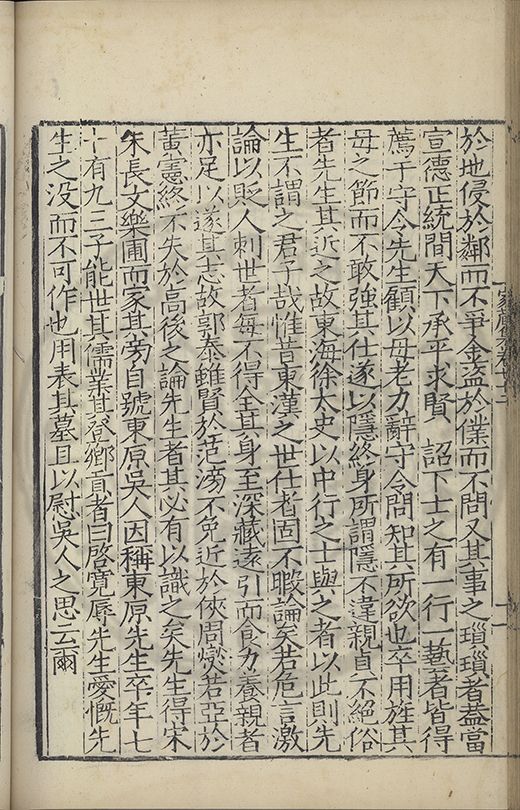 於地侵於鄰而不爭金盜於僕而不問又其事之瑣瑣者葢當
宣德正統間天下承平求賢 詔下士之有一行一藝者皆得
薦于守令先生顧以母老力辭守令問知其所欲也卒用旌其
母之節而不敢強其仕遂以隱終身所謂隱不違親貞不絕俗
者先生其近之故東海徐太史以中行之士與之者以此則先
生不謂之君子哉惟昔東漢之世仕者固不暇論矣若危言激
論以貶人刺世者每不得全其身至深藏遠引而食力養親者
亦足以遂其志故郭泰雖賢於范滂不免近於俠周爕若亞於
黃憲終不失於高後之論先生者其必有以識之矣先生得宋
朱長文樂圃而家其旁自號東原吳人因稱東原先生卒年七
十有九三子能世其儒業其登鄉貢者曰啓寬辱先生愛慨先
生之没而不可作也用表其墓且以慰吳人之思云爾